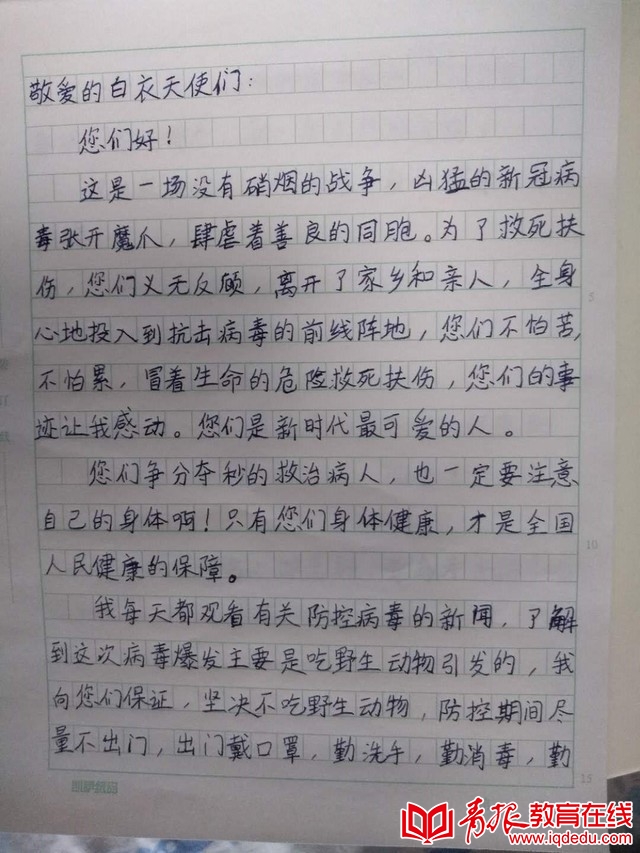 敬爱的白衣天使们：
您们好！
这是一场没有硝烟的战争，凶猛的新冠病
毒张开魔爪，肆虐着善良的同胞。为了救死扶
伤，您们义无反顾，离开了家乡和亲人，全身
心地投入到抗击病毒的前线阵地，您们不怕苦，
不怕累，冒着生命的危险救死扶伤，您们的事
迹让我感动。您们是新时代最可爱的人。
您们争分夺秒的救治病人，也一定要注意
自己的身体啊！只有您们身体健康，才是全国
人民健康的保障。
我每天都观看有关防控病毒的新闻，了解
到这次病毒爆发主要是吃野生动物引发的，我
向您们保证，坚决不吃野生动物，防控期间尽
量不出门，出门戴口罩，勤洗手，勤消毒，勤
5
10
15
青报教育在线
www.iqdedu.com